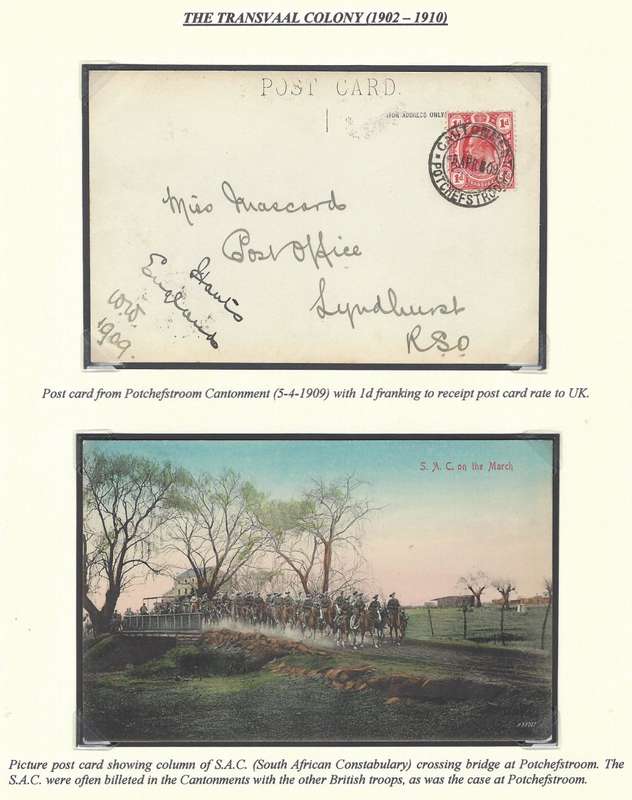 THE TRANSVAAL COLONY (1902 – 1910)
POST CARD.
FOR ADDRESS ONLY
1d 1d
1d 1d
CANTONMENT
APR 09
POTCHEFSTROOM
Miss Mascard
Post Office
Lyndhurst
RSO
Hants
England
1909.
Post card from Potchefstroom Cantonment (5-4-1909) with 1d franking to receipt post card rate to UK.
S. A. C. on the March
Picture post card showing column of S.A.C. (South African Constabulary) crossing bridge at Potchefstroom. The
S.A.C. were often billeted in the Cantonments with the other British troops, as was the case at Potchefstroom.